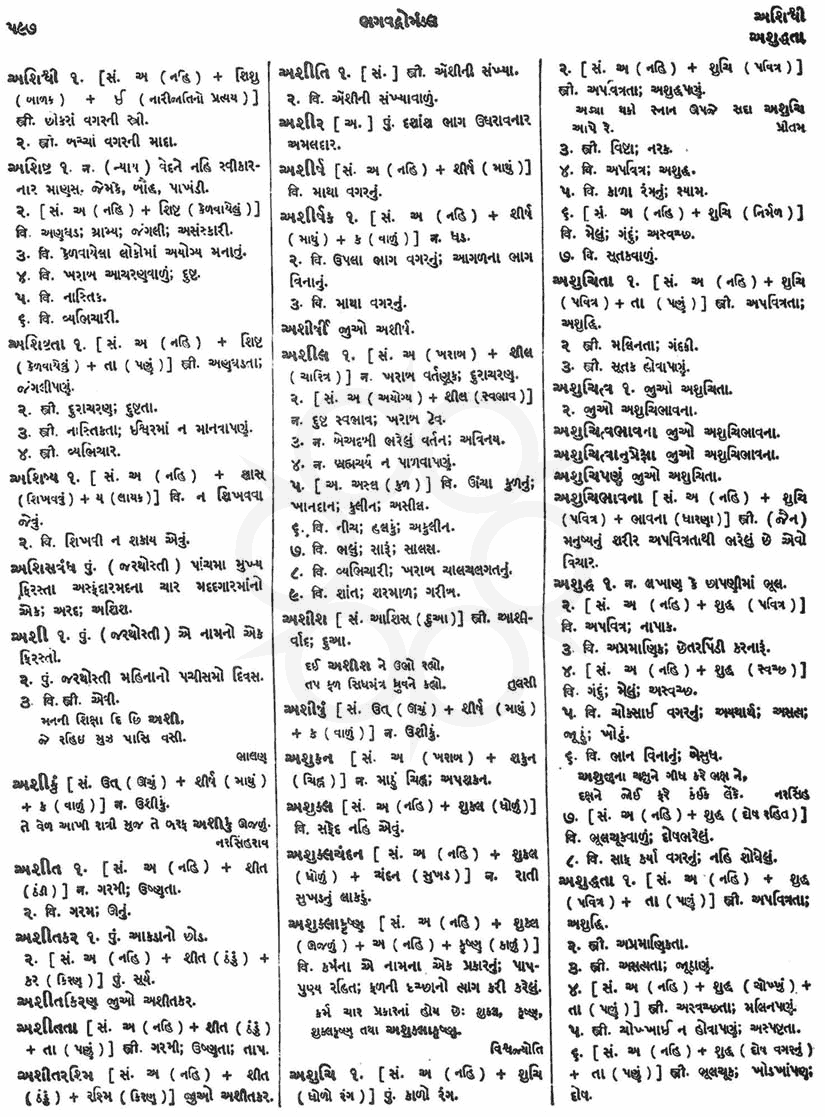 ૫૯૭
ભગવદ્ગોમંડલ
અશિશ્વી
અશુદ્ધતા
અશિશ્વી ૧. [સં. અ (નહિ) + શિશુ
(બાળક) + ઈ (નારીજાતિનો પ્રત્યય)]
સ્ત્રી. છોકરાં વગરની સ્ત્રી.
૨. સ્ત્રી. બચ્ચાં વગરની માદા.
અશિષ્ટ ૧. ન. (ન્યાય) વેદને નહિ સ્વીકાર-
નાર માણુસ. જેમકે, બૌદ્ધ, પાખંડી.
૨. [સં. અ (નહિ) + શિષ્ટ (કેળવાયેલું)]
વિ. અણુઘડ; ગ્રામ્ય; જંગલી; અસંસ્કારી.
૩. વિ. કેળવાયેલા લોકોમાં અયોગ્ય મનાતું.
૪. વિ. ખરાબ આચરણવાળું; દુષ્ટ.
૫. વિ. નાસ્તિક.
૬. વિ. વ્યભિચારી.
અશિષ્ટતા ૧. [સં. અ (નહિ) + શિષ્ટ
(કેળવાયેલું) + તા (પણું)] સ્ત્રી. અણુઘડતા;
જંગલીપણું.
૨. સ્ત્રી. દુરાચરણ; દુષ્ટતા.
૩. સ્ત્રી. નાસ્તિકતા; ઈશ્વરમાં ન માનવાપણું.
૪. સ્ત્રી. વ્યભિચાર.
અશિષ્ય ૧. [સં. અ (નહિ) + શાસ્
(શિખવવું) + ય (લાયક)] વિ. ન શિખવવા
જેવું.
૨. વિ. શિખવી ન શકાય એવું.
અશિસવંધ પું. (જરથોસ્તી) પાંચમા મુખ્ય
ફિરસ્તા અસ્ફંદારમદના ચાર મદદગારમાંનો
એક; અરદ; અશિશ.
અશી ૧. પું. (જરથોસ્તી) એ નામનો એક
ફિરસ્તો.
૨. પું. જરથોસ્તી મહિનાનો પચીસમો દિવસ.
૩. વિ. સ્ત્રી. એવી.
મનની શિક્ષા દિ છિ અશી,
જે રહિઇ મુઝ પાસિ વસી.
ભાલણ
અશીકું [સં. ઉત્ (ઊંચું) + શીર્ષ (માથું)
+ ક (વાળું)] ન. ઉશીકું.
તે વેળ આખી રાત્રી મુજ તે બરફ અશીકું ઊજળું.
નરસિંહરાવ
અશીત ૧. [સં. અ (નહિ) + શીત
(ઠંડી)] ન. ગરમી; ઉષ્ણુતા.
૨. વિ. ગરમ; ઊનું.
અશીતકર ૧. પું. આકડાનો છોડ.
૨. [સં. અ (નહિ) + શીત (ઠંડું) +
કર (કિરણ)] પું. સૂર્ય.
અશીતકિરણ જુઓ અશીતકર.
અશીતતા [સં. અ (નહિ) + શીત (ઠંડું)
+ તા (પણું)] સ્ત્રી. ગરમી; ઉષ્ણુતા; તાપ.
અશીતરશ્મિ [સં. અ (નહિ) + શીત
(ઠંડું) + રશ્મિ (કિરણ)] જુઓ અશીતકર.
અશીતિ ૧. [સં.] સ્ત્રી. એંશીની સંખ્યા.
૨. વિ. એંશીની સંખ્યાવાળું.
અશીર [અ.] પું. દશાંશ ભાગ ઉઘરાવનાર
અમલદાર.
અશીર્ષ [સં. અ (નહિ) + શીર્ષ (માથું)]
વિ. માથા વગરનું.
અશીર્ષક ૧. [સં. અ (નહિ) + શીર્ષ
(માથું) + ક (વાળું)] ન. ધડ.
૨. વિ. ઉપલા ભાગ વગરનું; આગળના ભાગ
વિનાનું.
૩. વિ. માથા વગરનું.
અશીર્ષી જુઓ અશીર્ષ.
અશીલ ૧. [સં. અ (ખરાબ) + શીલ
(ચારિત્ર)] ન. ખરાબ વર્તણૂક; દુરાચરણ.
૨. [સં. અ (અયોગ્ય) + શીલ (સ્વભાવ)]
ન. દુષ્ટ સ્વભાવ; ખરાબ ટેવ.
૩. ન. બેઅદબી ભરેલું વર્તન; અવિનય.
૪. ન. બ્રહ્મચર્ય ન પાળવાપણું.
૫. [અ. અસ્લ (કુળ)] વિ. ઊંચા કુળનું;
ખાનદાન; કુલીન; અસીલ.
૬. વિ. નીચ; હલકું; અકુલીન.
૭. વિ. ભલું; સારું; સાલસ.
૮. વિ. વ્યભિચારી; ખરાબ ચાલચલગતનું.
૯. વિ. શાંત; શરમાળ; ગરીબ.
અશીશ [સં. આશિસ્ (દુઆ)] સ્ત્રી. આશી-
ર્વાદ; દુઆ.
દઈ અશીશ ને ઉભો રહ્યો,
તપ ફળ સિધમંત્ર ધ્રુવને કહ્યો.
તુલસી
અશીષું [સં. ઉત્ (ઊંચું) + શીર્ષ (માથું)
+ ક (વાળું)] ન. ઉશીકું.
અશુકન [સં. અ (ખરાબ) + શકુન
(ચિહ્ન)] ન. માઠું ચિહ્ન; અપશકન.
અશુકલ [સં. અ (નહિ) + શુકલ (ધોળું)]
વિ. સફેદ નહિ એવું.
અશુકલચંદન [સં. અ (નહિ) + શુકલ
(ધોળું) + ચંદન (સુખડ)] ન. રાતી
સુખડનું લાકડું.
અશુકલાકૃષ્ણ [સં. અ (નહિ) + શુકલ
(ઊજળું) + અ (નહિ) + કૃષ્ણ (કાળું)]
વિ. કર્મના એ નામના એક પ્રકારનું; પાપ-
પુણ્ય રહિત; ફળની ઇચ્છાનો ત્યાગ કરી કરેલું.
કર્મ ચાર પ્રકારનાં હોય છેઃ શુકલ, કૃષ્ણ,
શુકલકૃષ્ણ તથા અશુકલાકૃષ્ણ.
વિશ્વજ્યોતિ
અશુચિ ૧. [સં. અ (નહિ) + શુચિ
(ધોળો રંગ)] પું. કાળો રંગ.
૨. [સં. અ (નહિ) + શુચિ (પવિત્ર)]
સ્ત્રી. અપવિત્રતા; અશુદ્ધપણું.
અડ્યા થકો સ્નાન ઉપજે સદા અશુચિ
આપે રે.
પ્રીતમ
૩. સ્ત્રી. વિષ્ટા; નરક.
૪. વિ. અપવિત્ર; અશુદ્ધ.
૫. વિ. કાળા રંગનું; શ્યામ.
૬. [સં. અ (નહિ) + શુચિ (નિર્મળ)]
વિ. મેલું; ગંદું; અસ્વચ્છ.
૭. વિ. સૂતકવાળું.
અશુચિતા ૧. [સં. અ (નહિ) + શુચિ
(પવિત્ર) + તા (પણું)] સ્ત્રી. અપવિત્રતા;
અશુદ્ધિ.
૨ સ્ત્રી. મલિનતા; ગંદકી.
૩. સ્ત્રી. સૂતક હોવાપણું.
અશુચિત્વ ૧. જુઓ અશુચિતા.
૨. જુઓ અશુચિભાવના.
અશુચિત્વભાવના જુઓ અશુચિભાવના.
અશુચિત્વાનુપ્રેક્ષા જુઓ અશુચિભાવના.
અશુચિપણું જુઓ અશુચિતા.
અશુચિભાવના [સં. અ (નહિ) + શુચિ
(પવિત્ર) + ભાવના (ધારણા)] સ્ત્રી. (જૈન)
મનુષ્યનું શરીર અપવિત્રતાથી ભરેલું છે એવો
વિચાર.
અશુદ્ધ ૧. ન. લખાણ કે છાપણીમાં ભૂલ.
૨. [સં. અ (નહિ) + શુદ્ધ (પવિત્ર)]
વિ. અપવિત્ર; નાપાક.
૩. વિ. અપ્રમાણિક; છેતરપિંડી કરનારું.
૪. [સં. અ (નહિ) + શુદ્ધ (સ્વચ્છ)]
વિ. ગંદું; મેલું; અસ્વચ્છ.
૫. વિ. ચોકસાઈ વગરનું; અયથાર્થ; અસત્ય;
જૂઠું; ખોટું.
૬. વિ. ભાન વિનાનું; બેસુધ.
અશુદ્ધના ચક્ષુને ગીધ કરે ભક્ષ ને,
દક્ષને જોઈ ફરે કંઈક ટેંકે.
નરસિંહ
૭. [સં. અ (નહિ) + શુદ્ધ (દોષ રહિત)]
વિ. ભૂલચૂકવાળું; દોષભરેલું.
૮. વિ. સાફ કર્યા વગરનું; નહિ શોધેલું.
અશુદ્ધતા ૧. [સં. અ (નહિ) + શુદ્ધ
(પવિત્ર) + તા (પણું)] સ્ત્રી. અપવિત્રતા;
અશુદ્ધિ.
૨. સ્ત્રી. અપ્રમાણિકતા.
૩. સ્ત્રી. અસત્યતા; જૂઠાણું.
૪. [સં. અ (નહિ) + શુદ્ધ (ચોખ્ખું) +
તા (પણું)] સ્ત્રી. અસ્વચ્છતા; મલિનપણું.
૫. સ્ત્રી. ચોખ્ખાઈ ન હોવાપણું; અસ્પષ્ટતા.
૬. [સં. અ (નહિ) + શુદ્ધ (દોષ વગરનું)
+ તા (પણું)] સ્ત્રી. ભૂલચૂક; ખોડખાંપણ;
દોષ.